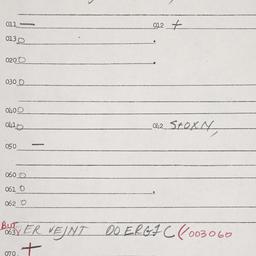 011 — 012 +
013 0 .
020 0 .
030 0
040 0
041 0 042 STOXN,
050 —
060 0
061 0 .
062 0
BUT
063 ER VEJNT DO ERGIC (003060
070 +